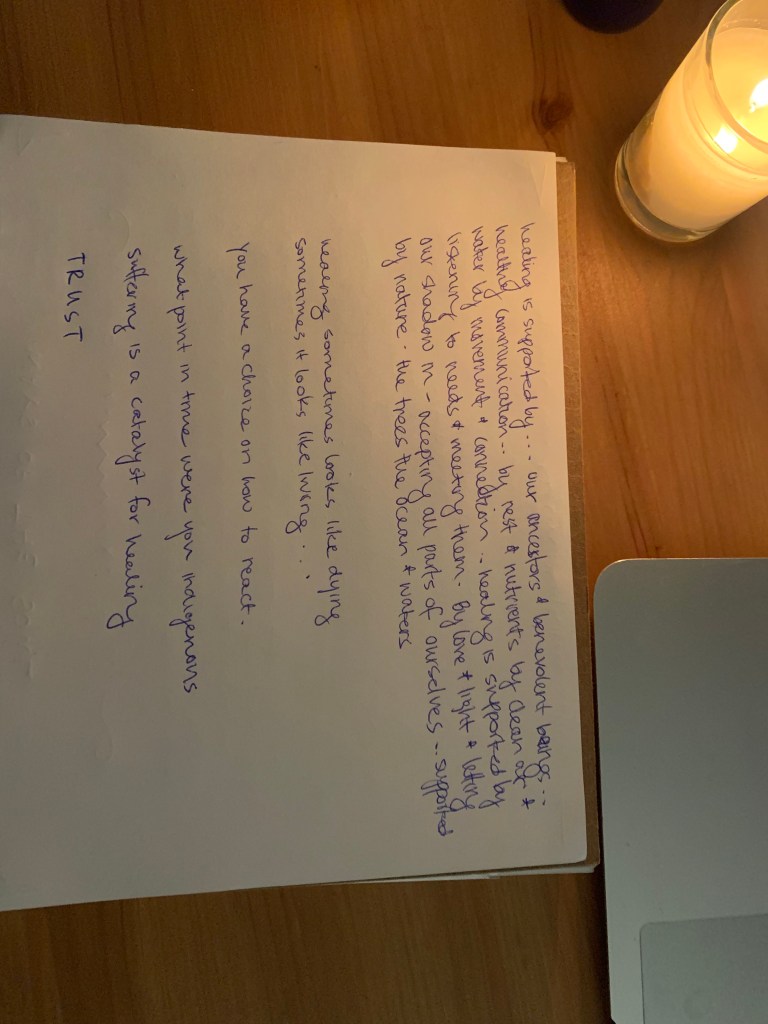 healing is supported by... our ancestors & benevolent beings...
healthy communication.. by rest & nutrients by clean air &
water by movement & connection.. healing is supported by
listening to needs & meeting them. By love & light & letting
our shadow in - accepting all parts of ourselves.. supported
by nature. the trees the ocean & waters
healing sometimes looks like dying
sometimes it looks like living...
You have a choice on how to react.
what point in time were you indigenous
suffering is a catalyst for healing
TRUST